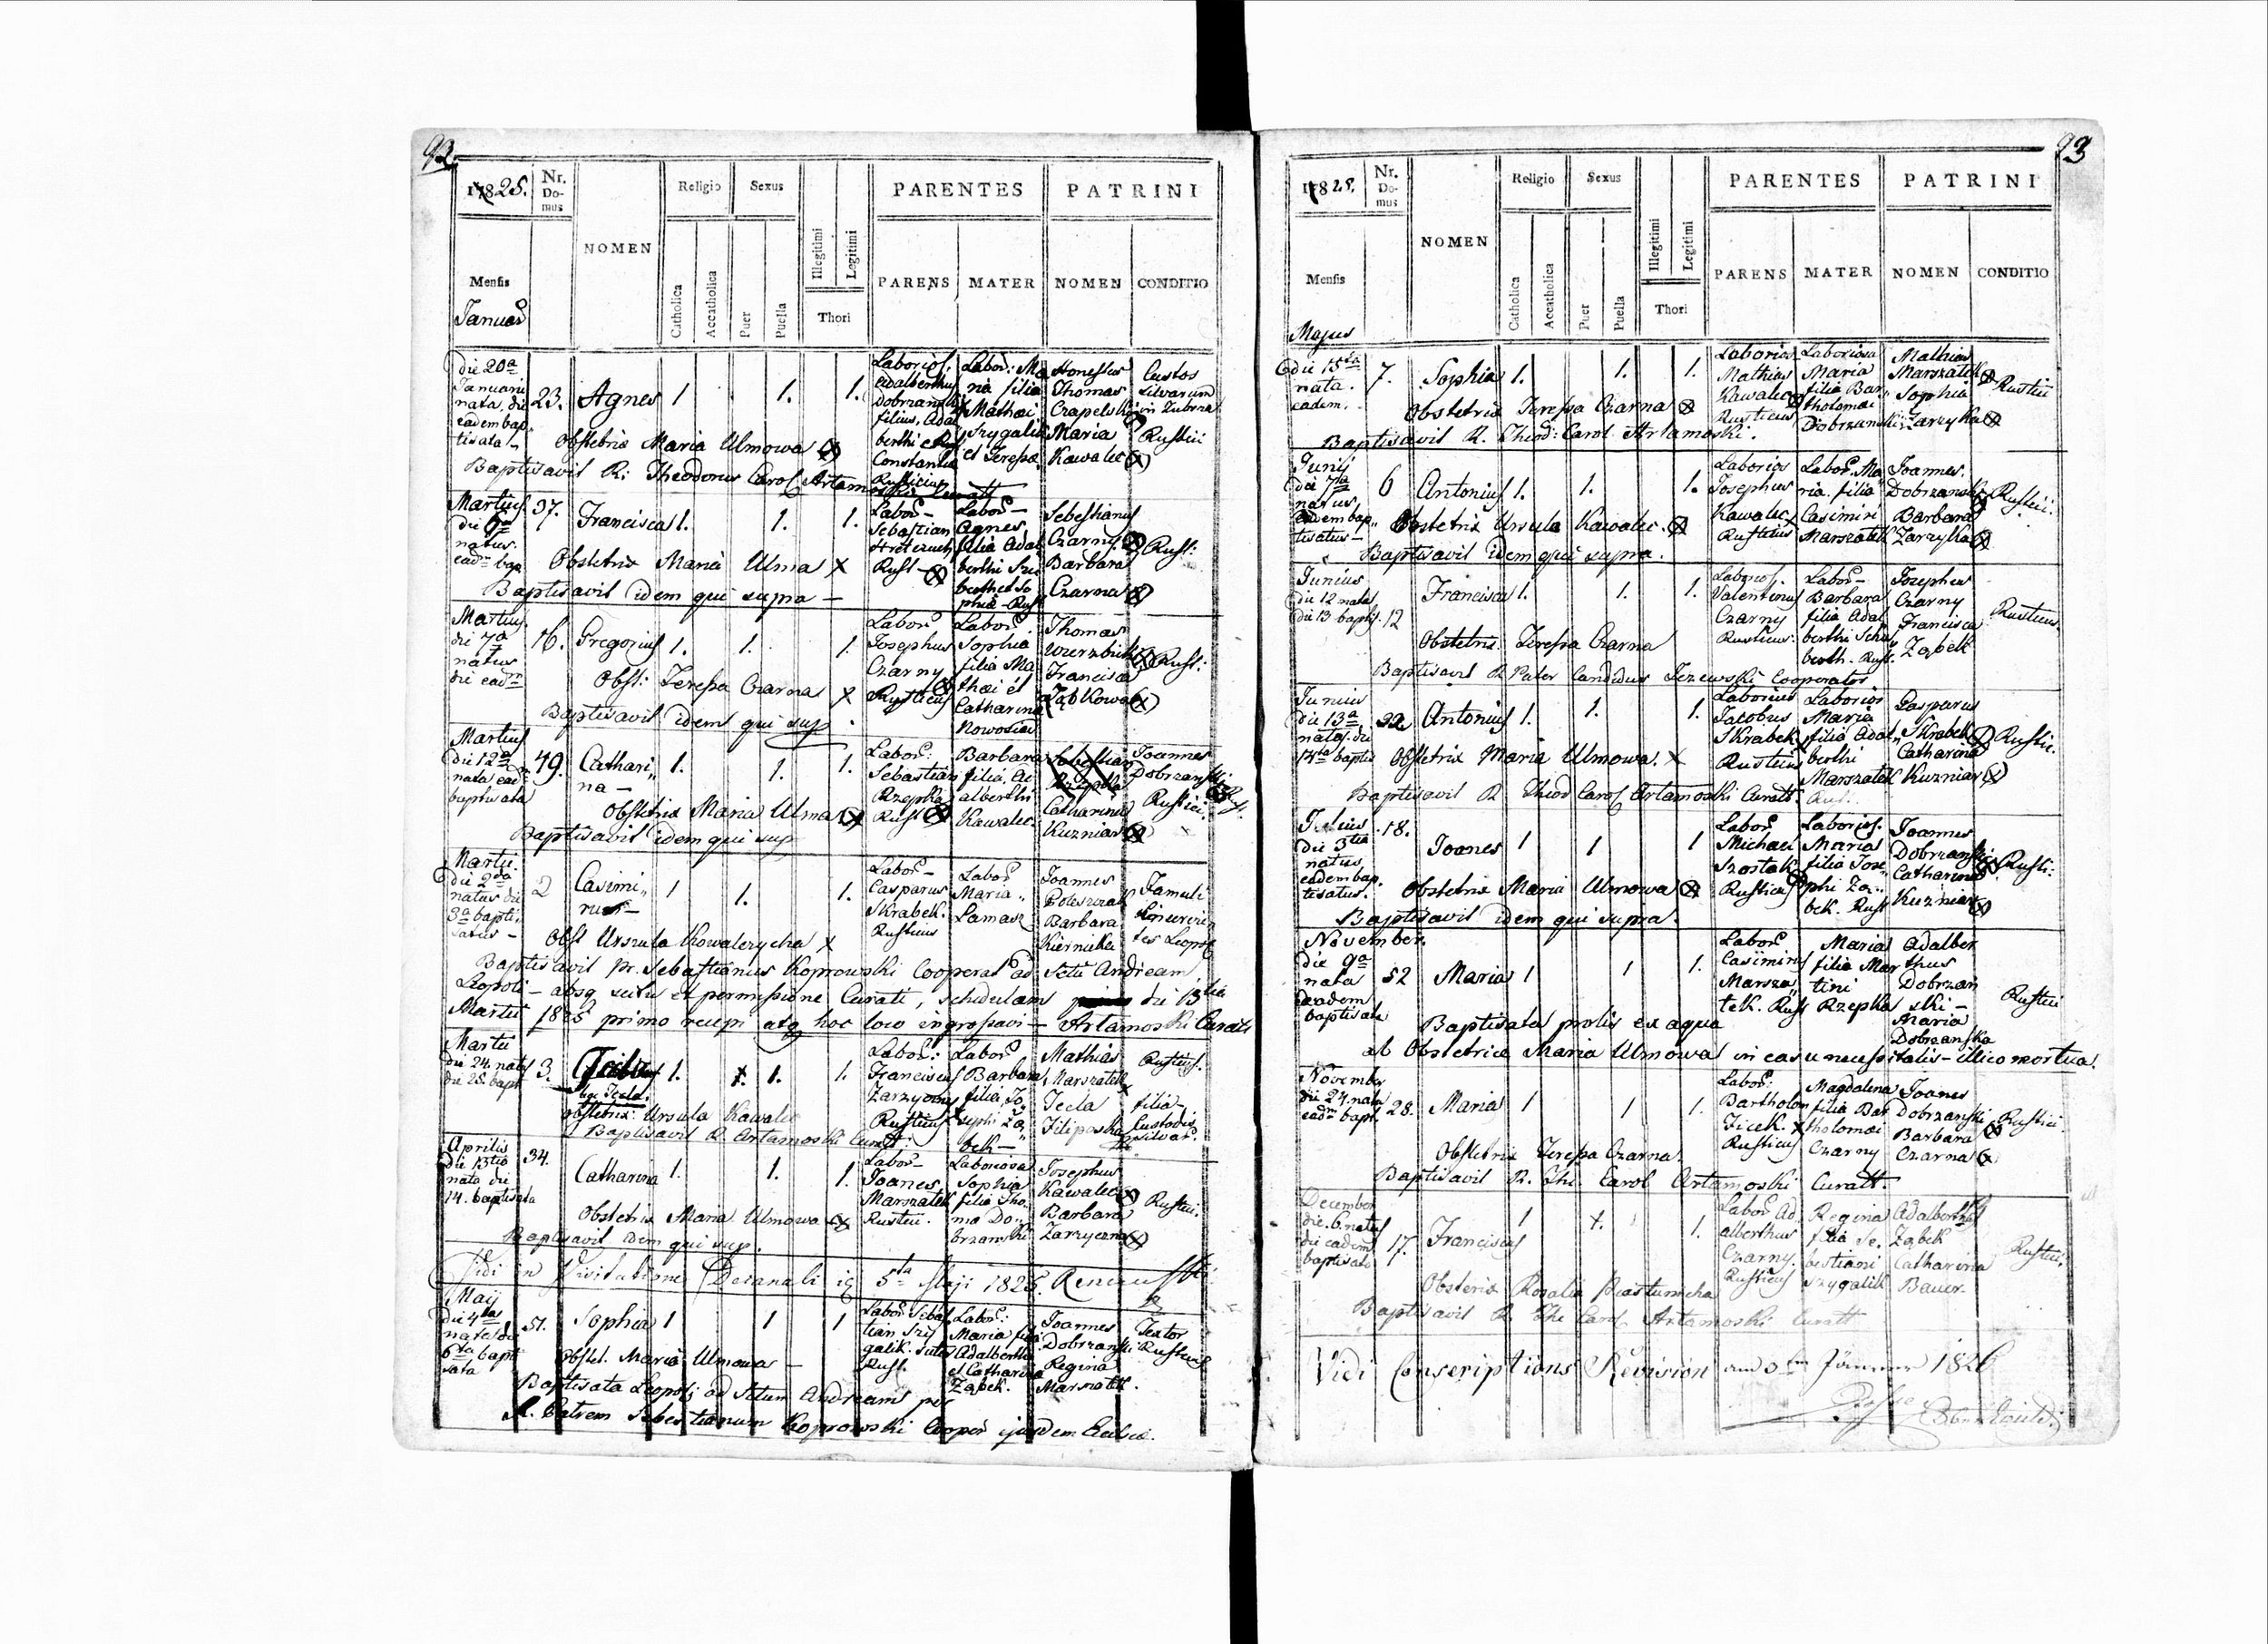 92.
1825.
Nr. Domus
NOMEN
Religio
Sexus
PARENTES
PATRINI
Mensis
Januar
Catholica
Accatholica
Puer
Puella
Illegitimi
Legitimi
Thori
PARENS
MATER
NOMEN
CONDITIO
die 20a Januarii nata, die eadem baptisata
23.
Agnes
1
1.
1.
Laborios. Adalberthus Dobrzanski filius, Adalberthi et Constantia Rusticius
Labor: Maria filia Mathæi Szygalik et Teressæ
Honestus Thomas Czapelski
Maria Kawalec
Custos Silvarum in Zubrza
Rustici
Obstetrix Maria Ulmowa
Baptisavit R: Theodorus Carol Artamoski Curatt
Martius die 6a natus. eadm bap
37.
Francisca
1.
1.
1.
Labor Sebastian Rust
Labor Agnes filia Adalberthi et Sophiæ Rust
Sebestianus Czarny
Barbara Czarna
Rust:
Obstetrix Maria Ulma
Baptisavit idem qui supra
Martius die 7a natus die eadm
16.
Gregorius
1.
1.
1.
Labor Josephus Czarny Rusticus
Labor Sophia filia Mathæi et Catharina Nowosiad
Thomas Wierzbicki
Francisca Ząbkowa
Rust:
Obst: Teressa Czarna
Baptisavit idem qui sup.
Martius die 12a nata ead baptisata
49.
Catharina
1.
1.
1.
Labor: Sebastian Rzepka Rust
Barbara filia Adalberthi Kawalec.
Catharina Kuzniar
Joannes Dobrzanski
Rustici
Obstetrix Maria Ulma
Baptisavit idem qui sup
Martii die 2da natus die 3a baptisatus
2
Casimirus
1
1.
1.
Labor Casparus Skrabek. Rusticus
Labor Maria Lamasz
Joannes Poleszczak
Barbara Kiernicka
Famuli
Obst Urszula Kowalczycha
Baptisavit Pr. Sebastianus Koprowski Cooperat ad Sctu Andream
Leopoli – absq scitu et permissione Curati, schedulam die 13tia
Martii 1825 primo recepi atq hoc loco ingrossavi – Artamoski Curatt
Martii die 24. nata die 25. bapt
3.
Tecla
1.
1.
1.
Labor: Franciscus Zarzyczny Rusticus
Labor Barbara filia Josephi Ząbek
Mathias Marszatek
Tecla Filiposka
Rusticus.
filia Custodis silvar.
Obstetrix: Ursula Kawalec
Baptisavit R. Artamoski Curatt:
Aprilis die 13tia nata die 14. baptisata
34.
Catharina
1.
1.
1.
Labor Joanes Marszatek Rustici.
Laboriosa Sophia filia Thoma Dobrzanski
Josephus Kawalec
Barbara Zarzyczna
Rustici.
Obstetrix Maria Ulmowa
Baptisavit idem qui sup.
Vidi in Visitatione Decanali 5ta Maji 1825.
Maij die 4ta nata die 6ta baptisata
51.
Sophia
1
1
1
Labor Sebastian Szygalik. Rust.
Labor: Maria filia Adalberthi et Catharina Ząbek.
Joannes Dobrzanski
Regina Marszatek.
Textor
Rusticus
Obstet. Maria Ulmowa
Baptisata Leopoli ad Sctum Andream per
R. Patrem Sebestianum Koprowski Cooper ejusdem Eccles.
93
1825.
Nr. Domus
NOMEN
Religio
Sexus
PARENTES
PATRINI
Mensis
Majus
Catholica
Accatholica
Puer
Puella
Illegitimi
Legitimi
Thori
PARENS
MATER
NOMEN
CONDITIO
die 15ta nata. eadem.
7.
Sophia
1.
1.
1.
Laborios Mathias Kawalec Rusticus
Laboriosa Maria filia Bartholomæi Dobrzanski
Mathias Marszatek
Sophia Zarzycka
Rustici
Obstetrix Teressa Czarna
Baptisavit R. Thiod: Carol Artamoski.
Junij die 7a natus, eadem baptisatus
6
Antonius
1.
1.
1.
Laborios Josephus Kawalec Rusticus
Labor. Maria filia Casimiri Marszatek
Joannes Dobrzanski
Barbara Zarzycka
Rustici.
Obstetrix Ursula Kawalec.
Baptisavit idem qui supra.
Junius die 12 nata die 13 baptis.
12
Francisca
1.
1.
1.
Laborios. Valentinus Czarny Rusticus:
Labor Barbara filia Adalberthi Rust.
Josephus Czarny
Francisca Ząbek
Rusticus.
Obstetrix Teressa Czarna
Baptisavit R Pater Candidus Jezewski Cooperator
Junius die 13a natus. die 14ta baptis
22
Antonius
1.
1.
1.
Laborius Jacobus Skrabek Rusticus
Laborios Maria filia Adalberthi Marszatek
Gasparus Skrabek
Catharina Kuzniar
Rustic.
Obstetrix Maria Ulmowa.
Baptisavit R Thiod Carol Artamoski Curatt.
Julius die 3tia natus eadem baptisatus.
18.
Joanes
1
1
1
Labor Michael Szostak Rusticus
Laborios. Maria filia Josephi Ząbek. Rust
Joannes Dobrzanski
Catharina Kuzniar
Rusti:
Obstetrix Maria Ulmowa
Baptisavit idem qui supra.
November die 9a nata eadem baptisata
52
Maria
1
1
1.
Labor Casimirus Marszatek. Rust
Maria filia Martini Rzepka
Adalberthus Dobrzanski –
Maria Dobrzanska
Rustici
Baptisata prolis ex aqua
ab Obstetrice Maria Ulmowa in casu necessitatis – illico mortua.
November die 24. nata eadm bapt.
28.
Maria
1
1
1.
Labor: Bartholom Ficek. Rusticus
Magdalena filia Bartholomæi Czarny
Joanes Dobrzanski
Barbara Czarna
Rustici.
Obstetrix Teressa Czarna.
Baptisavit R. Thi. Carol Artamoski Curatt.
December die. 6. natus die eadem baptisatus
17.
Franciscus
1
1.
1.
Labor Adalberthus Czarny. Rusticus
Regina filia Sebestiani Szygalik
Adalberthus Ząbek
Catharina Bauer.
Rustici.
Obstetrix Rosalia Piastunicha
Baptisavit R Thi Carol Artamoski Curatt
Vidi Conscriptions Revision am 3ten Jänner 1826